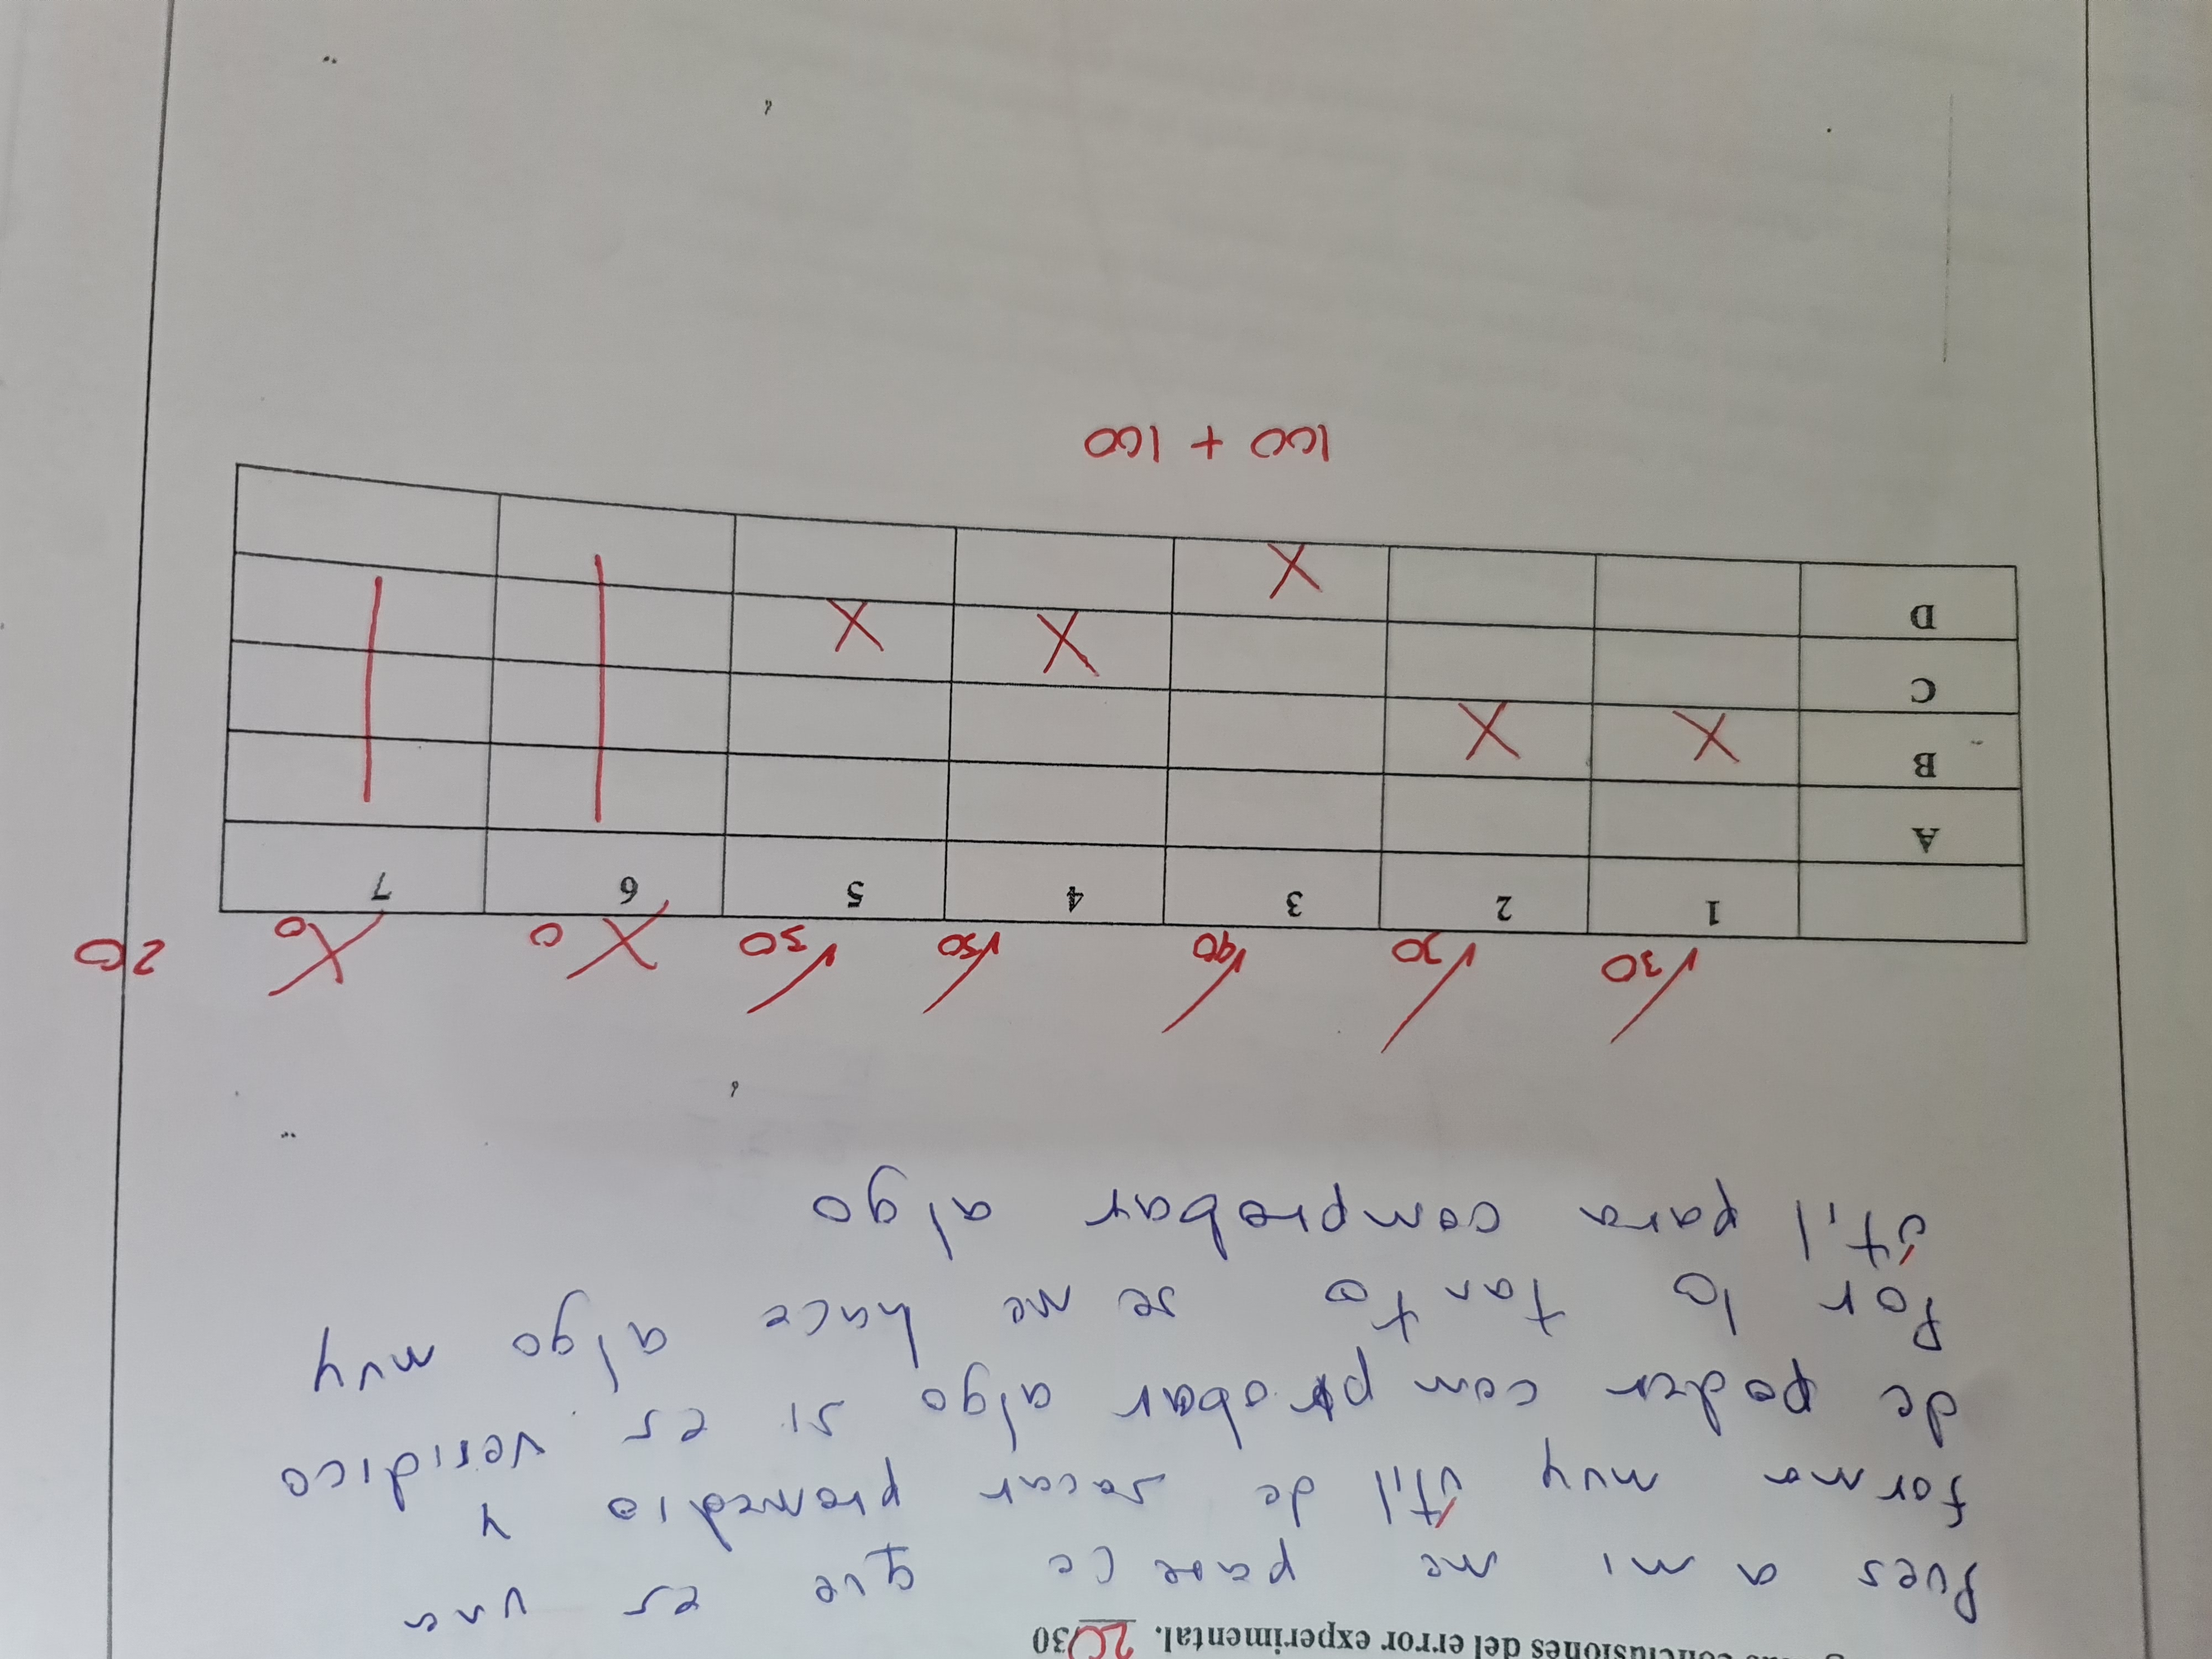 conclusiones del error experimental. 20/30
Pues a mi me parece que es una
forma muy útil de sacar promedio y
de poder comprobar algo si es verídico
Por lo tanto se me hace algo muy
útil para comprobar algo
✓30 ✓30 ✓40 ✓30 ✓30 X0 X0 20
1 2 3 4 5 6 7
A
B X X
C X X
D X
100 + 100